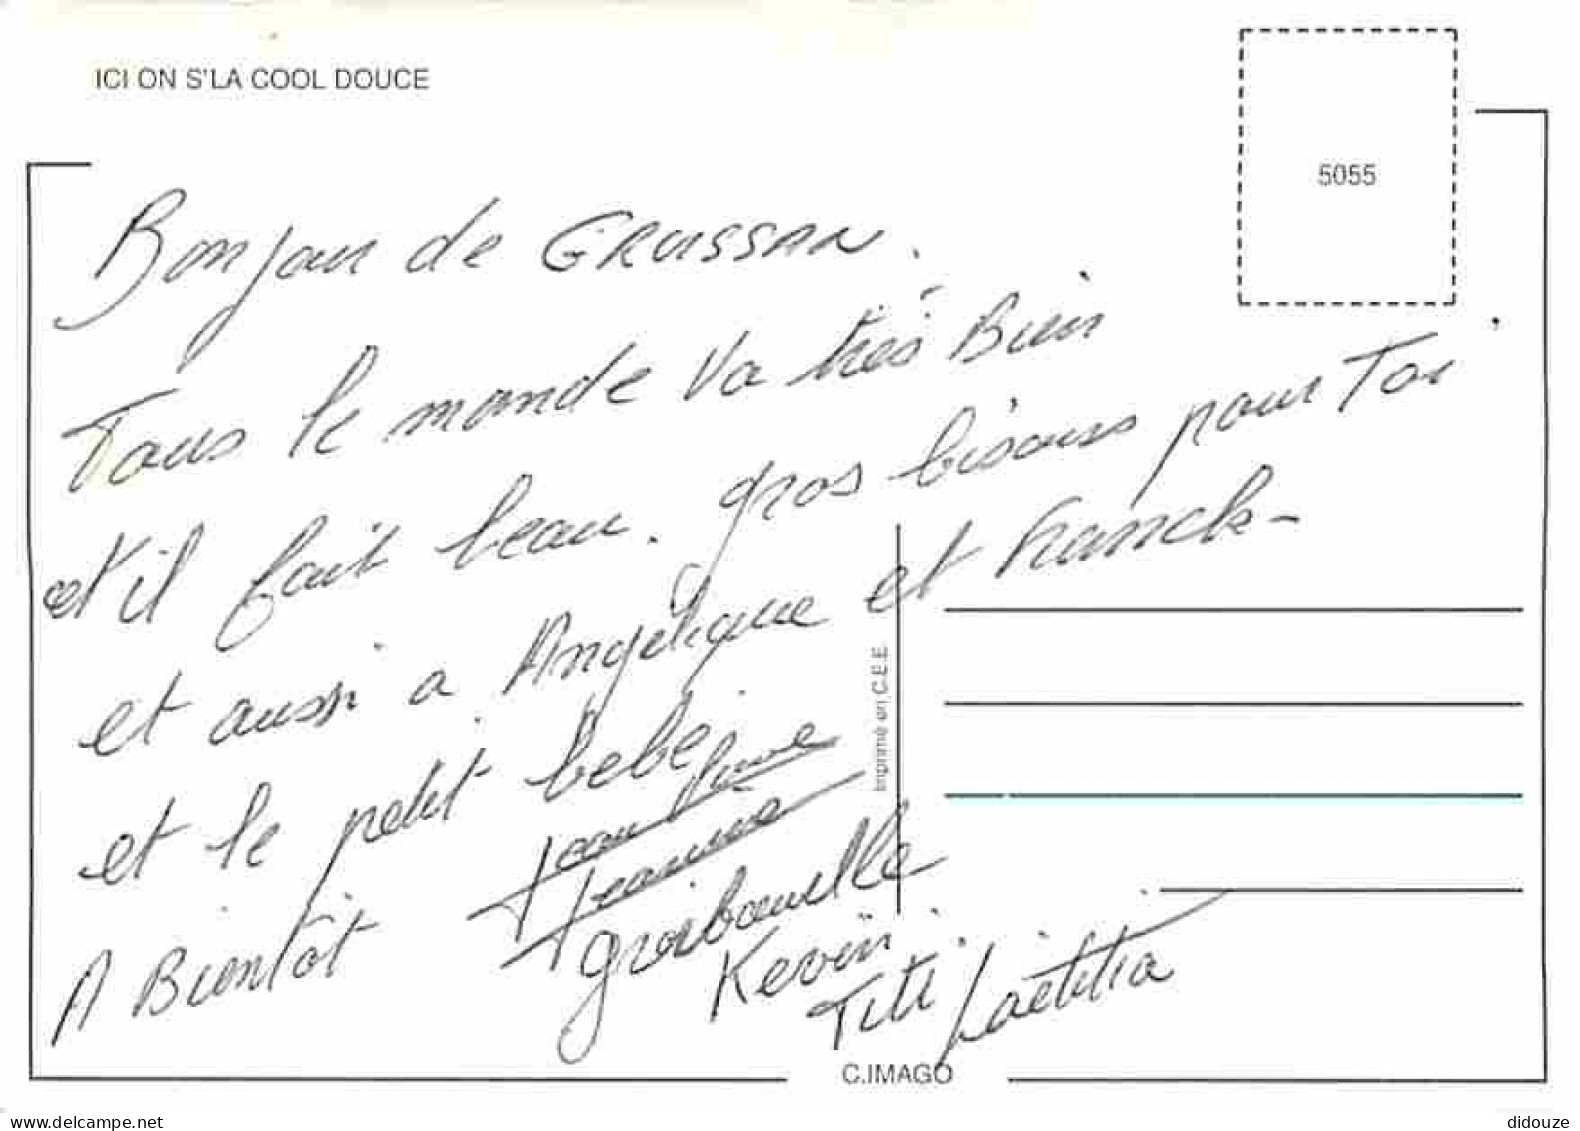 ICI ON S'LA COOL DOUCE
5055
Bonjour de GRUISSAN.
Tous le monde va très Bien
et il fait beau. gros bisous pour Toi.
et aussi a Angélique et Franck-
et le petit bebe
A Bientôt
Jean Pierre
Jeannine
gribouille
Kevin
Titi
Laëtitia
Imprimé en C.E.E.
C.IMAGO
www.delcampe.net
didouze